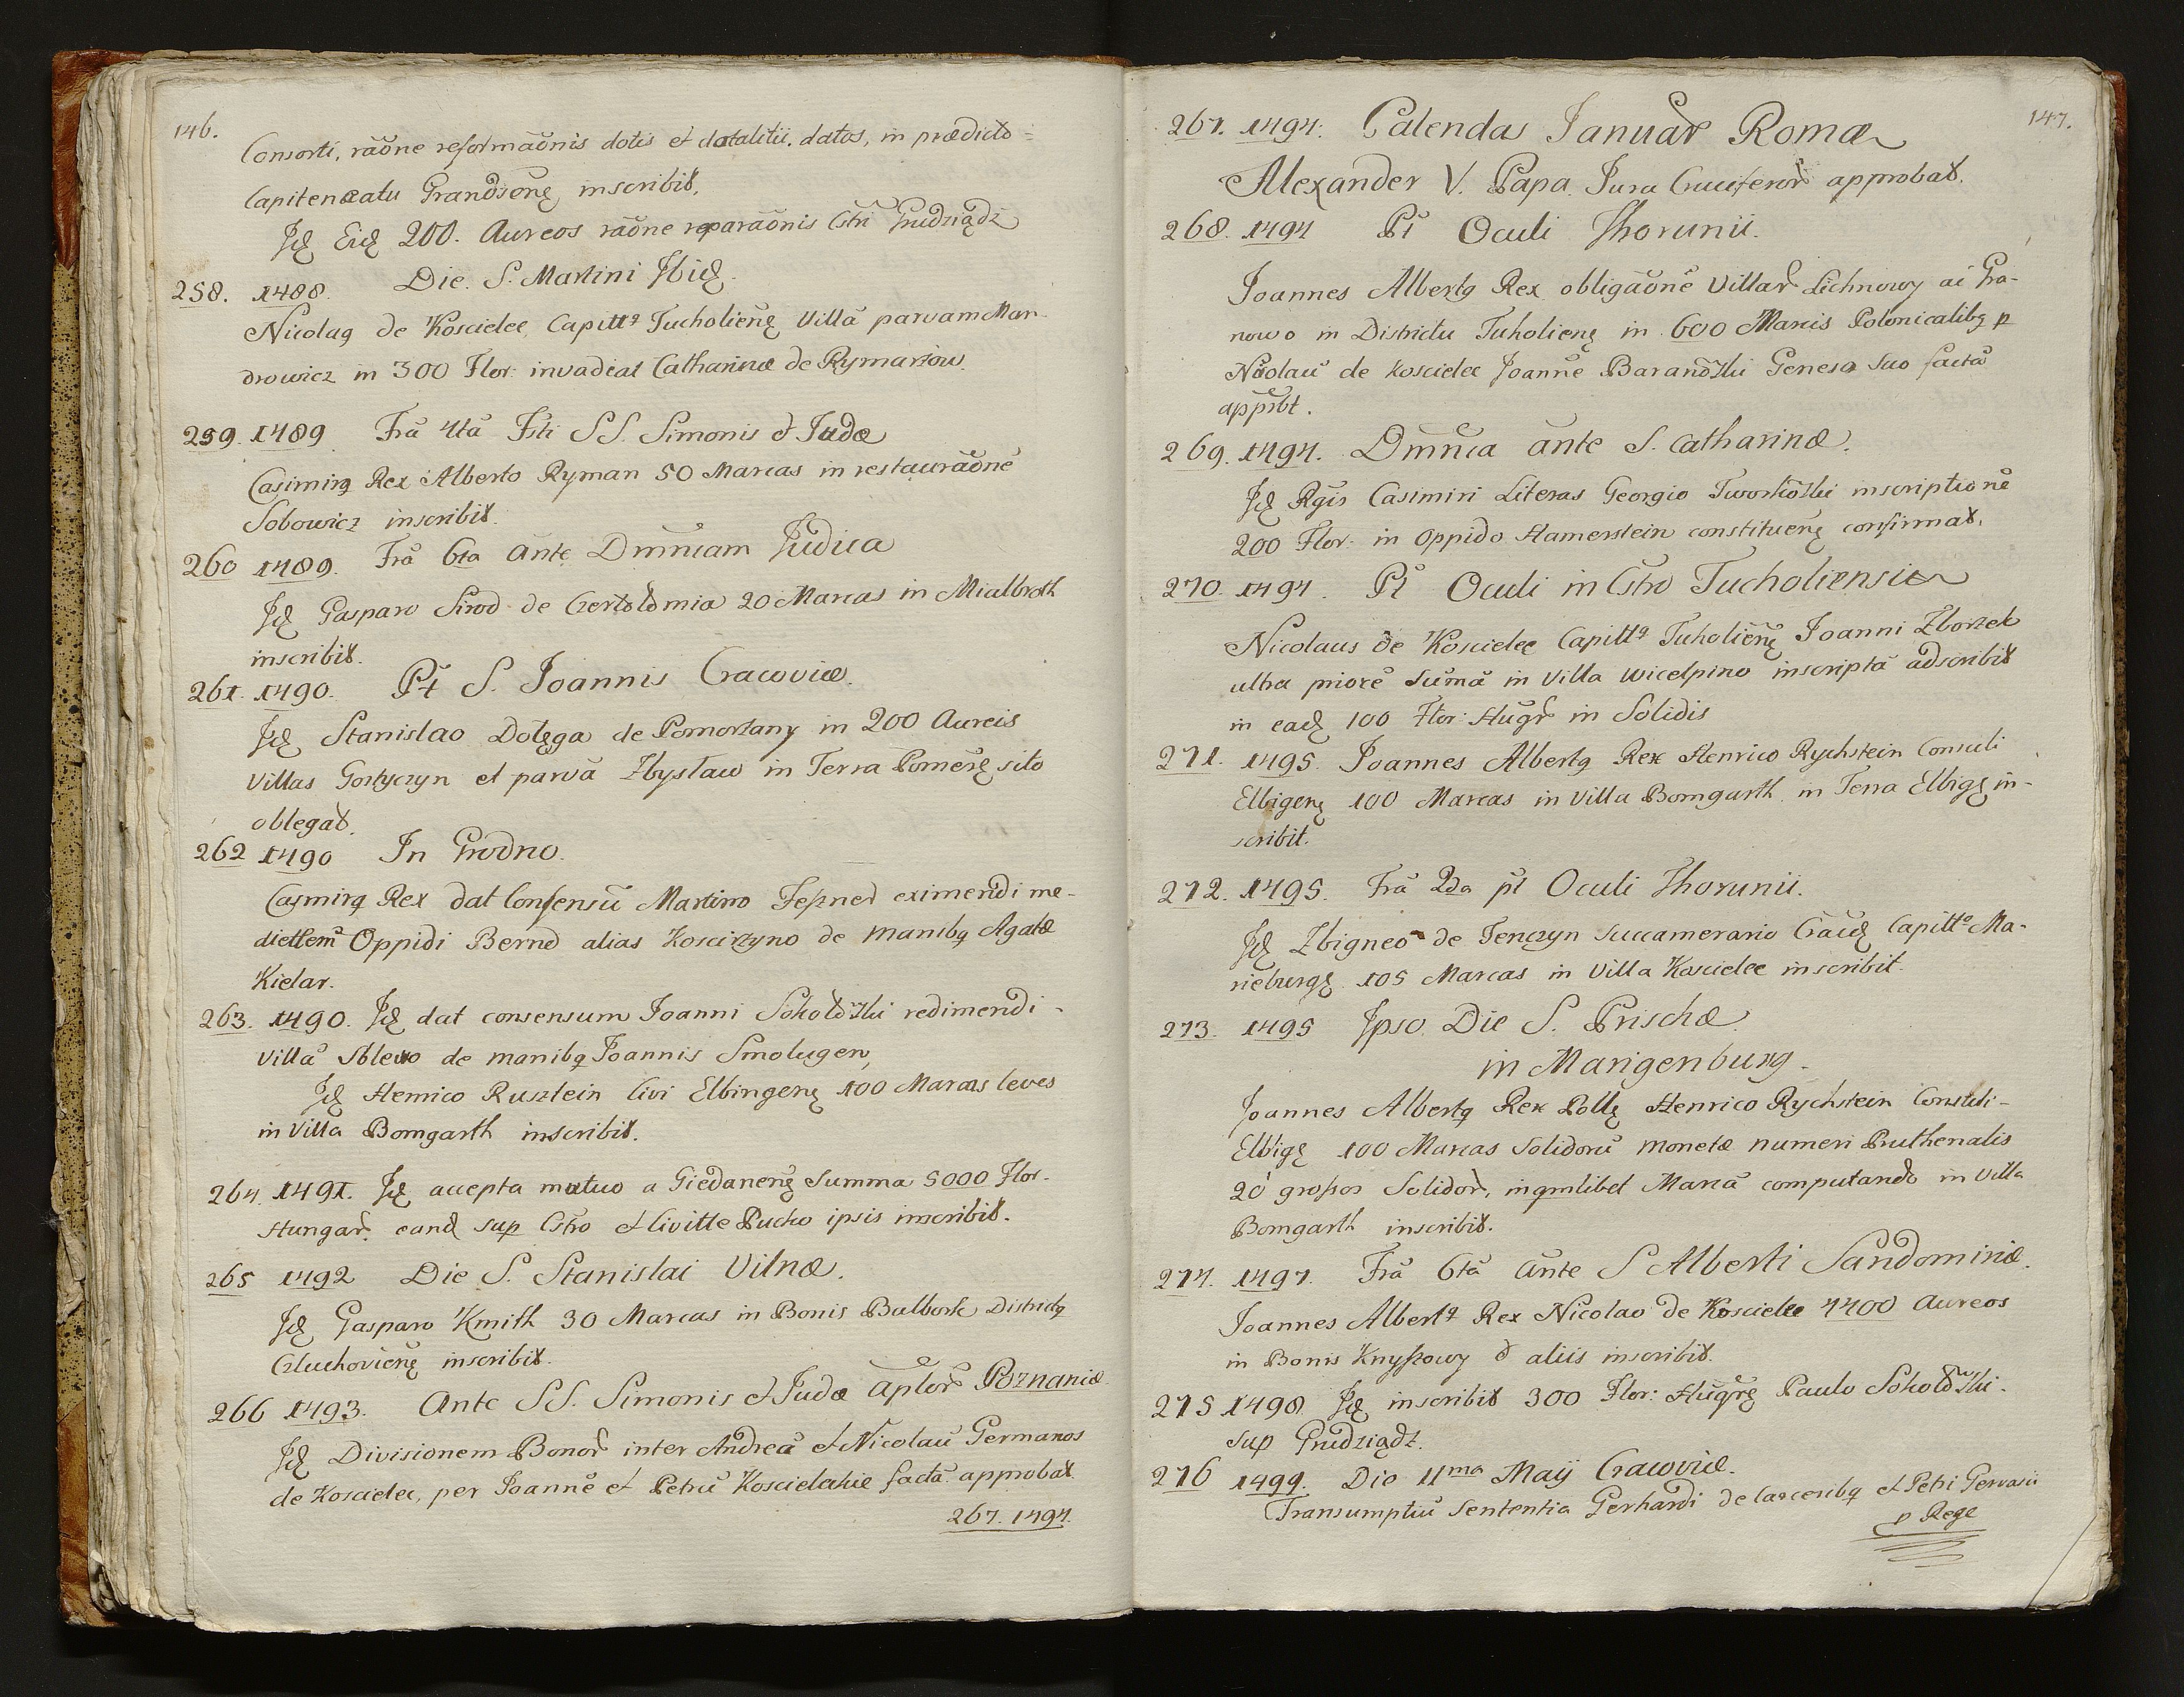 146.
Consorti, rãone reformãonis dotis et dotalitii. datos, in prædicto-
Capiteneatu Grandzonę inscribit.
Id Eid 200. Aureos rãone reparãonis Cstri Grudziądz
258. 1488. Die. S. Martini Ibid.
Nicolaq de Koscielec Capittq Tucholienę Villã parvam Man-
drowicz in 300 Flor: invadiat Catharinæ de Rymarzow.
259. 1489 Frã 4tã Fsti SS. Simonis et Judæ
Casimirq Rex Alberto Ryman 50 Marcas in restaurãonẽ
Sobowicz inscribit.
260 1489. Frã 6ta Ante Dmnicam Judica
Id Gasparo Sirod de Certolomia 20 Marcas in Mialbroth
inscribit.
261. 1490. Pt S. Joannis Cracoviæ.
Id Stanislao Dolęga de Pomorzany in 200 Aureis
Villas Gostyczyn et parvã Zbysław in Terra Pomerę sito
oblegat.
262 1490 In Grodno.
Casmirq Rex dat Consensũ Martino Feszner eximendi me-
dietlem Oppidi Bernd alias Koscirzyno de manibq Agatæ
Kielar.
263. 1490. Id dat consensum Joanni Sokołdzki redimendi-
Villã Sblewo de manibq Joannis Smolugen,
Id Henrico Rusztein Civi Elbingenę 100 Marcas leves
in Villa Bomgarth inscribit.
264. 1491. Id accepta mutuo a Giedanenę Summa 5000 Flor.
Hungar. eand sup Cstro et Civitte Pucko ipsis inscribit.
265 1492 Die S. Stanislai Vilnæ.
Id Gasparo Kmith 30 Marcas in Bonis Bulbork Districtq
Czluchovienę inscribit.
266 1493. Ante SS. Simonis et Judæ Aplor Poznaniæ.
Id Divisionem Bonor inter Andreã et Nicolaũ Germanos
de Koscielec, per Joannẽ et Petrũ Koscieleckie factã approbat.
267. 1494.
147.
267. 1494. Calendas Januar Romæ
Alexander V. Papa Jura Cruciferor approbat.
268. 1494 Pt Oculi Thorunii.
Joannes Albertq Rex obligãonẽ Villar Lichnowy ai Gra-
nowo in Districtu Tuholienę in 600 Marcis Polonicalibq p
Nicolaũ de Koscielec Joannẽ Barandzki Genero suo factã
appbt.
269. 1494. Dmnica ante S. Catharinæ.
Id Rgis Casimiri Literas Georgio Tworkozki inscriptionẽ
200 Flor. in Oppido Hamerstein constituenę confirmat.
270. 1494. Pt Oculi in Cstro Tucholiensi
Nicolaus de Koscielec Capittq Tuholienę Joanni Zborzek
ultra priorẽ Sumã in Villa Wicelpino inscriptã adscribit
in eadḍ 100 Flor: Hũgr in Solidis
271. 1495. Joannes Albertq Rex Henrico Rychstein Consuli
Elbigenę 100 Marcas in Villa Bomgarth in Terra Elbigę in-
scribit.
272. 1495. Frã 2da pt Oculi Thorunii.
Id Zbigneo de Tenczyn Succamerario Crac Capitto Ma-
rieburgę 105 Marcas in Villa Koscielec inscribit.
273. 1495 Ipso Die S. Prischæ
in Marigenburg.
Joannes Albertq Rex Pollę Henrico Rychstein Consuli-
Elbigę 100 Marcas Solidorũ monetæ numeri Pruthenalis
20 grossos Solidor, in qmlibet Marcã computando in Villa
Bomgarth inscribit.
274. 1497. Frã 6tã Ante S Alberti Sandomiriæ.
Joannes Albertq Rex Nicolao de Koscielec 4400 Aureos
in Bonis Knyszowy et aliis inscribit.
275 1498 Id inscribit 300 Flor: Hũgrę Paulo Sokoldwzki-
sup Grudziądz.
276 1499. Die 11ma Maij Cracoviæ.
Transumptũ Sententia Gerhardi de Carceribq et Petri Gervasii
p Rege